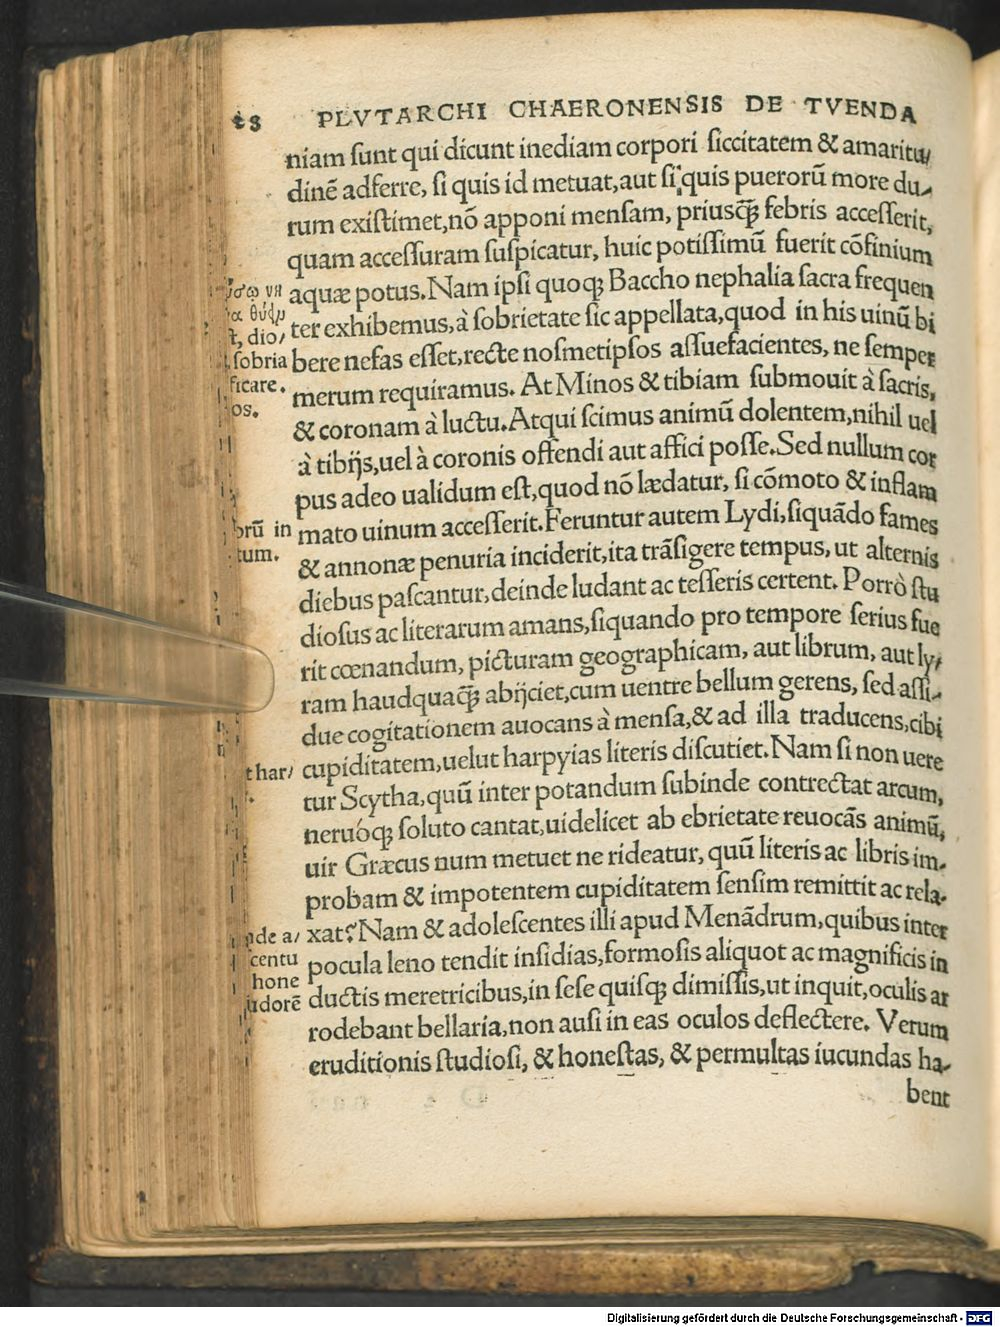 28 PLVTARCHI CHAERONENSIS DE TVENDA
niam sunt qui dicunt inediam corpori siccitatem & amaritu/
dinē adferre, si quis id metuat, aut si quis puerorū more du-
rum existimet, nō apponi mensam, priusq̃ febris accesserit,
quam accessuram suspicatur, huic potissimū fuerit cōfinium
aquæ potus. Nam ipsi quoq; Baccho nephalia sacra frequen
ter exhibemus, à sobrietate sic appellata, quod in his uinū bi
bere nefas esset, recte nosmetipsos assuefacientes, ne semper
merum requiramus. At Minos & tibiam submouit à sacris,
& coronam à luctu. Atqui scimus animū dolentem, nihil uel
à tibijs, uel à coronis offendi aut affici posse. Sed nullum cor
pus adeo ualidum est, quod nō lædatur, si cōmoto & inflam
mato uinum accesserit. Feruntur autem Lydi, siquādo fames
& annonæ penuria inciderit, ita trāsigere tempus, ut alternis
diebus pascantur, deinde ludant ac tesseris certent. Porrò stu
diosus ac literarum amans, siquando pro tempore serius fue
rit cœnandum, picturam geographicam, aut librum, aut ly/
ram haudquaq̃ abijciet, cum uentre bellum gerens, sed assi-
due cogitationem auocans à mensa, & ad illa traducens, cibi
cupiditatem, uelut harpyias literis discutiet. Nam si non uere
tur Scytha, quū inter potandum subinde contrectat arcum,
neruóq; soluto cantat, uidelicet ab ebrietate reuocās animū,
uir Græcus num metuet ne rideatur, quū literis ac libris im-
probam & impotentem cupiditatem sensim remittit ac rela-
xat? Nam & adolescentes illi apud Menādrum, quibus inter
pocula leno tendit insidias, formosis aliquot ac magnificis in
ductis meretricibus, in sese quisq; dimissis, ut inquit, oculis ar
rodebant bellaria, non ausi in eas oculos deflectere. Verum
eruditionis studiosi, & honestas, & permultas iucundas ha-
bent
t, dio/
sobria
ficare.
os.
brū in
tum.
thar/
de a/
centu
hone
udorē
Digitalisierung gefördert durch die Deutsche Forschungsgemeinschaft - DFG